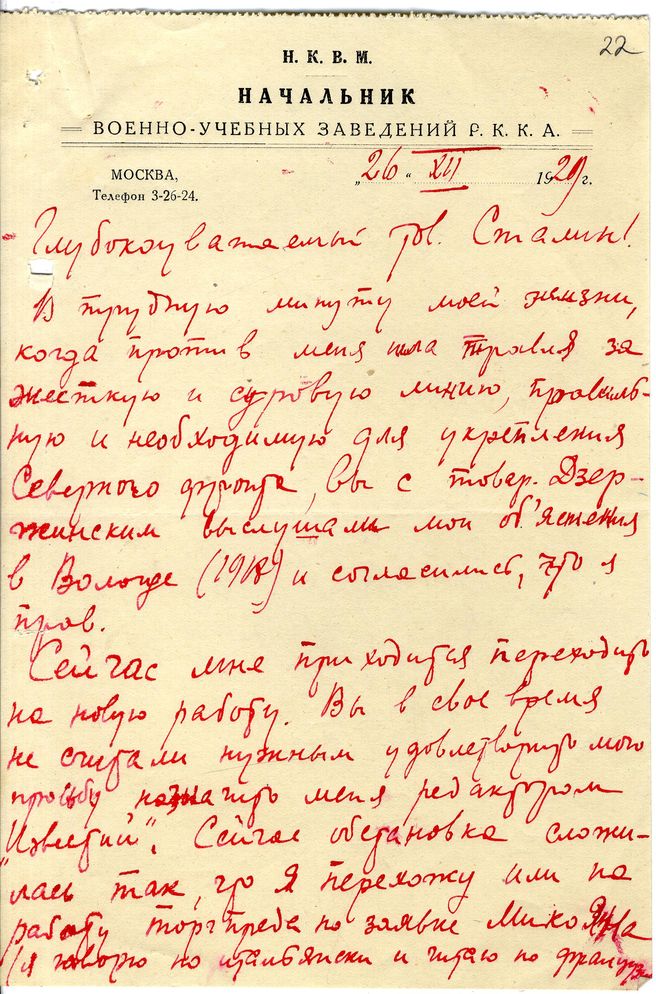 22
Н. К. В. М.
НАЧАЛЬНИК
ВОЕННО-УЧЕБНЫХ ЗАВЕДЕНИЙ Р. К. К. А.
МОСКВА,
Телефон 3-26-24.
„26" XII 1929 г.
Глубокоуважаемый тов. Сталин!
В трудную минуту моей жизни,
когда против меня шла травля за
жесткую и суровую линию, правиль-
ную и необходимую для укрепления
Северного фронта, вы с товар. Дзер-
жинским выслушали мои об'яснения
в Вологде (1918) и согласились, что я
прав.
Сейчас мне приходится переходить
на новую работу. Вы в свое время
не считали нужным удовлетворить мою
просьбу назначить меня редактором
"Известий". Сейчас обстановка сложи-
лась так, что я перехожу или на
работу торгпреда по заявке Микояна
(я говорю по итальянски и читаю по французски